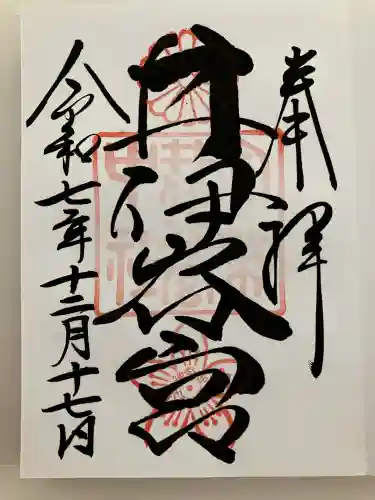 奉拝
井伊谷宮
令和七年十二月十七日